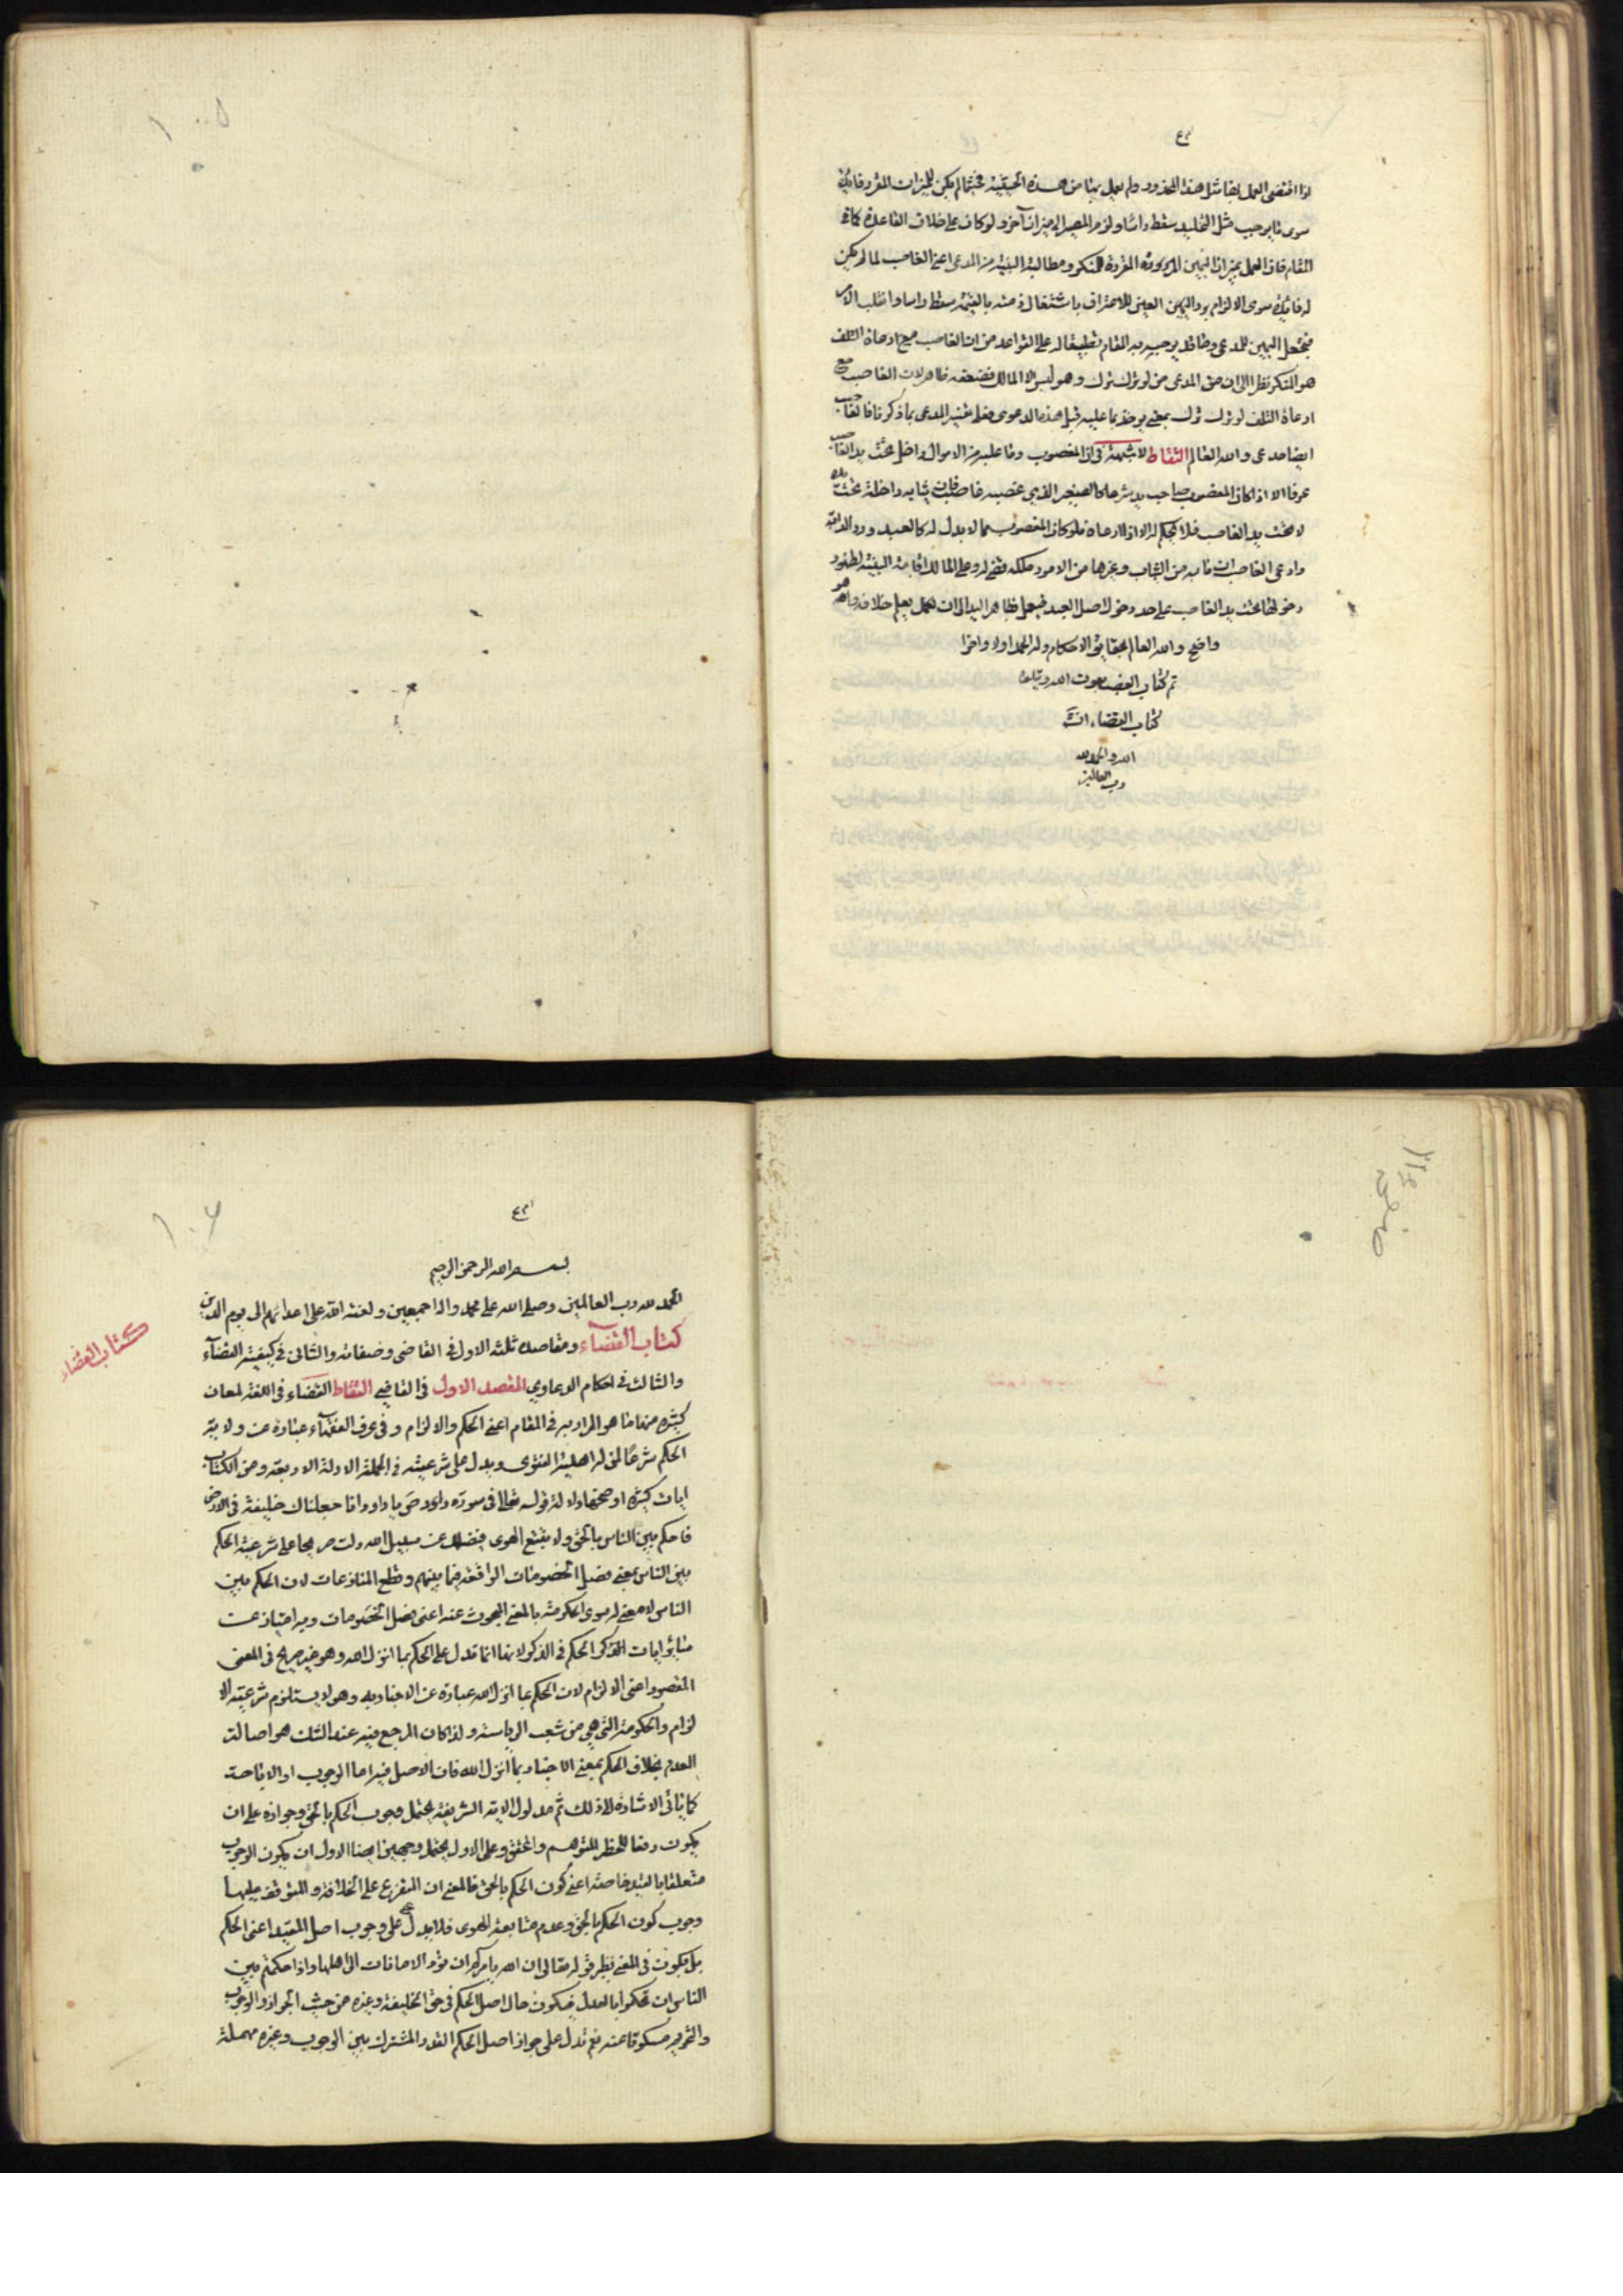 اذا اقتضى العمل بها مثل هذا المحذور ولم يعمل بها من هذه الحيثية فحيثما لم يكن للميزان المقرر فائدة
سوى ما يوجب مثل التخليد سقط راسا ولزم المصير الى ميزان آخر ولو كان على خلاف القاعدة كما في
المقام فان العمل بميزان اليمين المقررة للمنكر ومطالبة البينة من المدعى اعنى الغاصب لما لم يكن
له فايدة سوى الالزام برد العين للاعتراف باشتغال ذمته بالقيمة سقط راسا وانقلب الامر
فيجعل اليمين للمدعى وما قد يوجه به المقام تطبيقا له على القواعد من ان الغاصب مع ادعاء التلف
هو المنكر نظرا الى ان المدعى من لو ترك ترك وهو ليس الا المالك فضعفه ظاهر لان الغاصب مع
ادعاء التلف لو ترك ترك بمعنى يوخذ بما عليه قبل هذه الدعوى فعلى تفسير المدعى بما ذكر فالغاصب
ايضا مدعى والله العالم التقاط لا شبهة في ان المغصوب وما عليه من الاموال داخل تحت يد الغاصب
عرفا الا اذا كان المغصوب صاحب يد شرعا كالصغير الذي غصبه غاصب فان ثيابه داخلة تحت يده
لا تحت يد الغاصب فلا يحكم له الا اذا ادعاه فلو كان المغصوب مما لا يد له كالعبد ورد الدابة
وادعى الغاصب ان ما به من الثياب وغيرها من الامور ملكه فهي له وعلى المالك اقامة البينة لظهور
دخولها تحت يد الغاصب على حد دخول اصل العبد فيعمل بظاهر اليد الى ان يعلم خلافه وهو
واضح والله العالم بحقايق الاحكام وله الحمد اولا واخرا
تم كتاب الغصب بعون الله ويتلوه
كتاب القضاء انشاء
الله والحمد لله
رب العالمين
١٠٥
١٠٦
بسم الله الرحمن الرحيم
الحمد لله رب العالمين وصلى الله على محمد واله اجمعين ولعنة الله على اعدائهم الى يوم الدين
كتاب القضاء
كتاب القضاء ومقاصده ثلثة الاول في القاضى وصفاته والثانى في كيفية القضاء
والثالث في احكام الدعاوي المقصد الاول في القاضي التقاط القضاء في اللغة لمعان
كثيرة منها ما هو المراد به في المقام اعنى الحكم والالزام وفى عرف الفقهاء عبارة عن ولاية
الحكم شرعا لمن له اهلية الفتوى ويدل على شرعيته في الجملة الادلة الاربعة ومن الكتاب
ايات كثيرة اوضحها دلالة قوله تعالى فى سورة داود ص يا داود انا جعلناك خليفة فى الارض
فاحكم بين الناس بالحق ولا تتبع الهوى فيضلك عن سبيل الله دلت صريحا على شرعية الحكم
بين الناس بمعنى فصل الخصومات الواقعة فيما بينهم وقطع المنازعات لان الحكم بين
الناس لا معنى له سوى الحكومة بالمعنى المبحوث عنه اعنى فصل الخصومات وبه امتياز عن
سائر ايات الحكم في الذكر لانها انما تدل على الحكم بما انزل الله وهو غير صريح فى المعنى
المقصود اعنى الالزام لان الحكم بما انزل الله عبارة عن الاخبار به وهو لا يستلزم شرعية الا
لزام والحكومة التي هي من شعب الرياسة ولذا كان المرجع فيه عند الشك هو اصالة
العدم بخلاف الحكم بمعنى الاخبار بما انزل الله فان الاصل فيه اما الوجوب او الاباحة
كما ياتي الاشارة الى ذلك ثم مدلول الاية الشريفة يحتمل وجوب الحكم بالحق وجوازه على ان
يكون دفعا للحظر المتوهم والمحقق وعلى الاول يحتمل وجهين ايضا الاول ان يكون الوجوب
متعلقا بالقيد خاصة اعنى كون الحكم بالحق فالمعنى ان المتفرع على الخلافة والمتوقف عليها
وجوب كون الحكم بالحق وعدم متابعة الهوى فلا يدل على وجوب اصل المقيد اعنى الحكم
بل يكون فى المعنى نظير قوله تعالى ان الله يامركم ان تؤدوا الامانات الى اهلها واذا حكمتم بين
الناس ان تحكموا بالعدل فيكون حال اصل الحكم فى حق الخليفة وغيره من حيث الجواز والوجوب
والتحريم مسكوتا عنه نعم تدل على جواز اصل الحكم القدر المشترك بين الوجوب وغيره مهملة